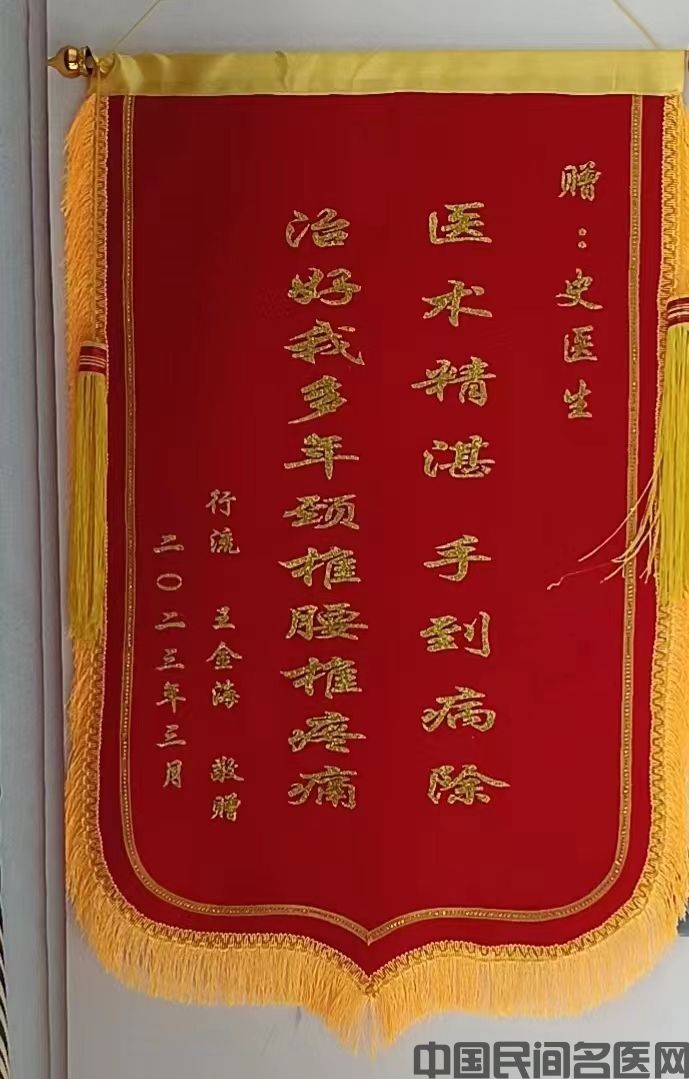 赠：史医生
医术精湛 手到病除
治好我多年颈椎腰椎疼痛
行流 王金海 敬赠
二〇二三年三月
中国民间名医网